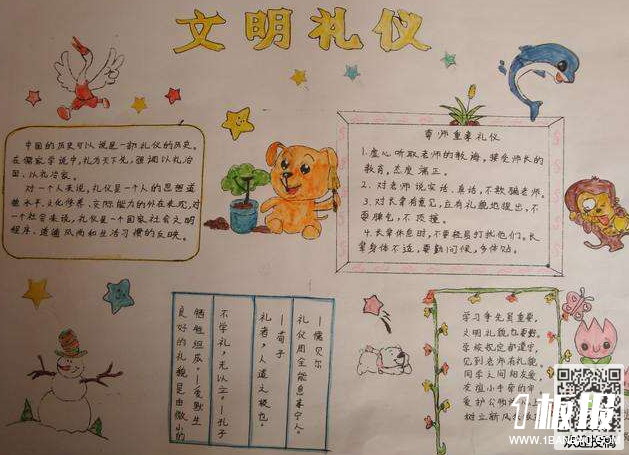 文明礼仪
中国的历史可以说是一部礼仪的历史。
在儒家学说中，礼为天下先，强调以礼治
国、以礼治家。
对一个人来说，礼仪是一个人的思想道
德水平、文化修养、交际能力的外在表现，对
一个社会来说，礼仪是一个国家社会文明
程序、道德风尚和生活习惯的反映。
尊师重亲礼仪
1.虚心听取老师的教诲，接受师长的
教育，态度端正。
2.对老师说实话、真话，不欺骗老师。
3.对长辈有意见，应有礼貌地提出，不
耍脾气，不顶撞。
4.长辈休息时，不要轻易打扰他们。长
辈身体不适，要勤问候，多体贴。
—儒贝尔
礼仪周全能息事宁人。
—荀子
礼者，人道之极也。
不学礼，无以立。—孔子
牺牲组成。—爱默生
良好的礼貌是由微小的
学习争先是重要，
文明礼貌
同学之间
爱护公物
树立新风
板报
WWW.1BANBAO.COM
欢迎投稿